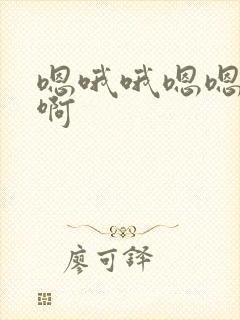 嗯哦哦嗯嗯
啊
廖可铎